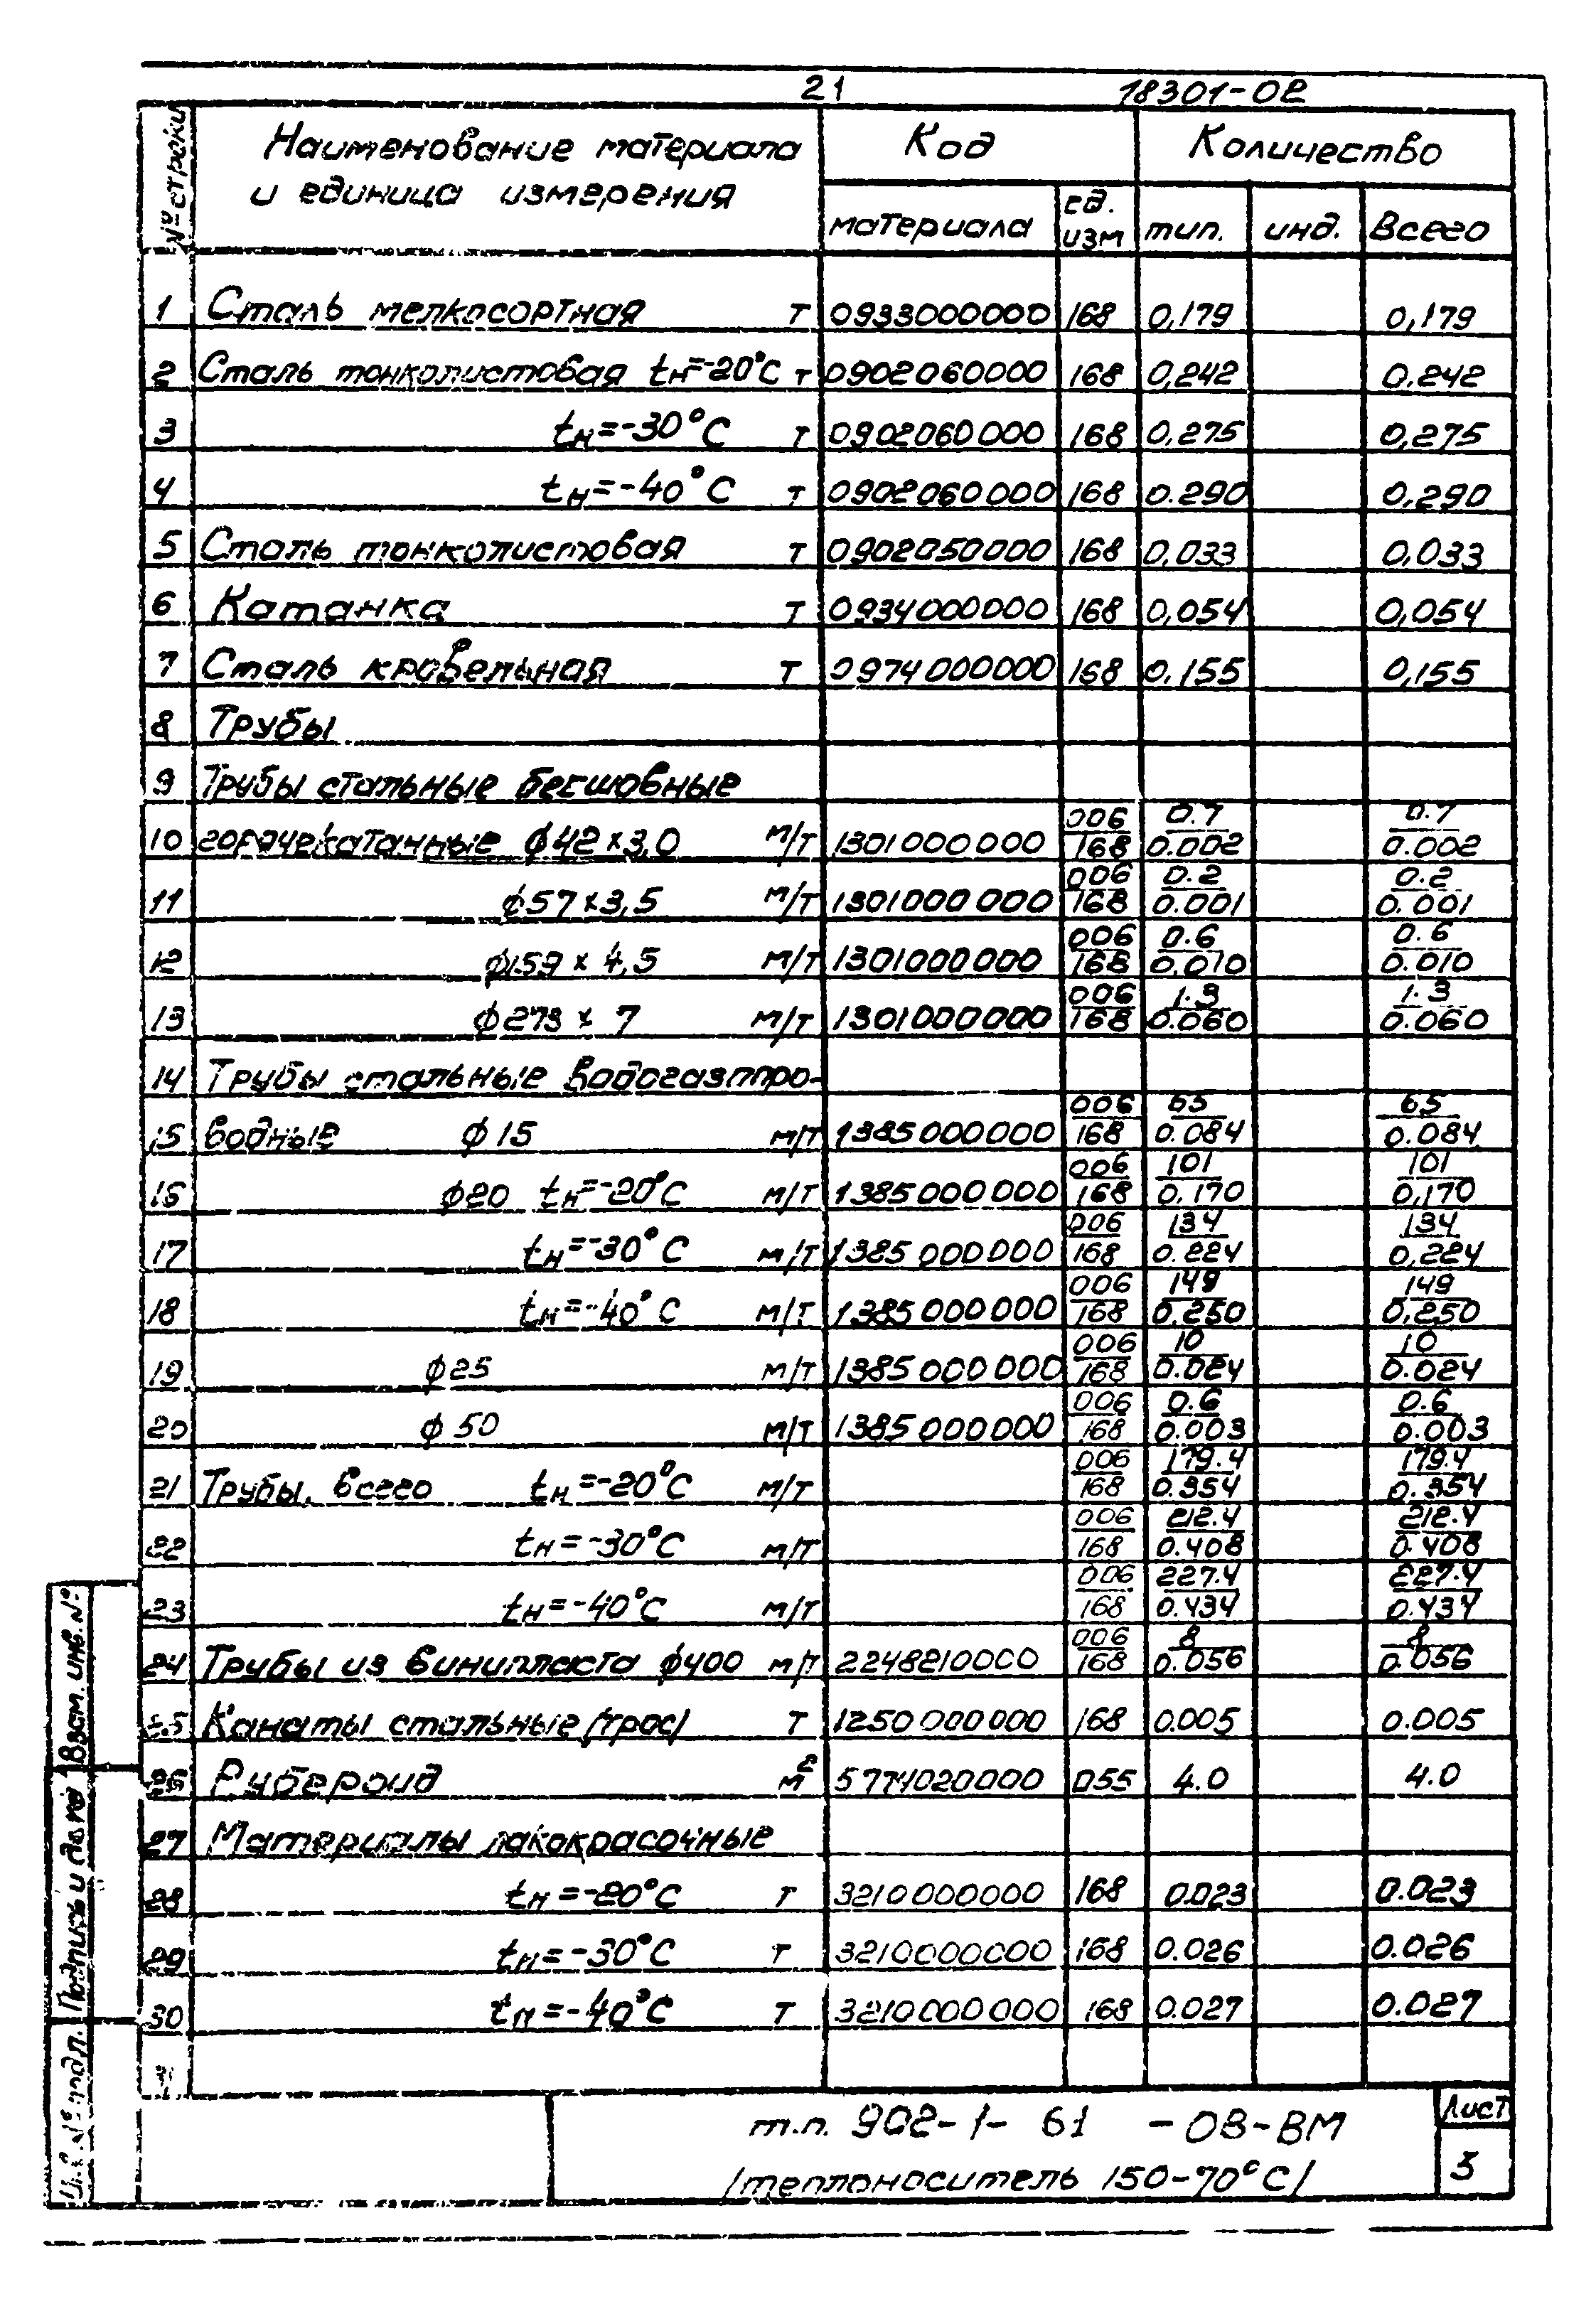 21 18301-02
№ строки Наименование материала и единица измерения Код Количество
материала ед. изм тип. инд. Всего
1 Сталь мелкосортная т 0933000000 168 0,179 0,179
2 Сталь тонколистовая tн=-20°С т 0902060000 168 0,242 0.242
3 tн=-30°С т 0902060000 168 0,275 0,275
4 tн=-40°С т 0902060000 168 0.290 0,290
5 Сталь тонколистовая т 0902050000 168 0,033 0,033
6 Катанка т 0934000000 168 0,054 0,054
7 Сталь кровельная т 0974000000 168 0,155 0,155
8 Трубы
9 Трубы стальные бесшовные
10 горячекатанные ϕ42×3,0 м/т 1301000000 006/168 0.7/0.002 0.7/0.002
11 ϕ57×3,5 м/т 1301000000 006/168 0.2/0.001 0.2/0.001
12 ϕ159×4,5 м/т 1301000000 006/168 0.6/0.010 0.6/0.010
13 ϕ273×7 м/т 1301000000 006/168 1.3/0.060 1.3/0.060
14 Трубы стальные водогазпро-
15 водные ϕ15 м/т 1385000000 006/168 65/0.084 65/0.084
16 ϕ20 tн=-20°С м/т 1385000000 006/168 101/0,170 101/0,170
17 tн=-30°С м/т 1385000000 006/168 134/0.224 134/0,224
18 tн=-40°С м/т 1385000000 006/168 149/0.250 149/0.250
19 ϕ25 м/т 1385000000 006/168 10/0.024 10/0.024
20 ϕ50 м/т 1385000000 006/168 0.6/0.003 0.6/0.003
21 Трубы, всего tн=-20°С м/т 006/168 179.4/0.354 179.4/0.354
22 tн=-30°С м/т 006/168 212.4/0.408 212.4/0.408
23 tн=-40°С м/т 006/168 227.4/0.434 227.4/0.434
24 Трубы из винипласта ϕ400 м/т 2248210000 006/168 8/0.056 8/0.056
25 Канаты стальные /трос/ т 1250000000 168 0.005 0.005
26 Рубероид м² 5774020000 055 4.0 4.0
27 Материалы лакокрасочные
28 tн=-20°С т 3210000000 168 0.023 0.023
29 tн=-30°С т 3210000000 168 0.026 0.026
30 tн=-40°С т 3210000000 168 0.027 0.027
31
Взам. инв. №
Подпись и дата
№ подл.
т.п. 902-1-61 -ОВ-ВМ
/теплоноситель 150-70°С/
Лист
3